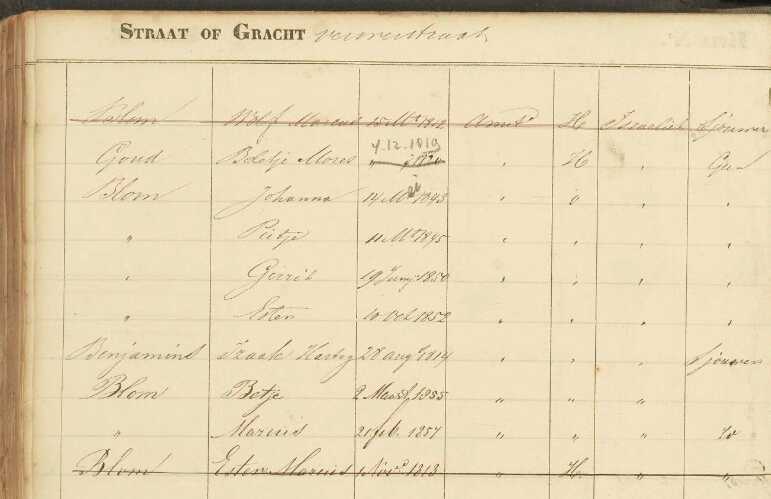 STRAAT OF GRACHT
Blom Wolf Marcus 15 Mt 1812 Amstd H Israeliet Sjouwer
4.12.1819
Goud Betje Mozes " " H "
Blom Johanna 14 Mei 1843 " " " "
" Pietje 11 Mt 1845 " " " "
" Gerrit 19 Juny 1850 " " " "
" Ester 10 Oct 1852 " " " "
Benjamins Izaak Hartog 28 Augt 1814 " " " Sjouwer
Blom Betje 2 Maart 1855 " " "
" Marcus 21 feb. 1857 " " "
Blom Ester Marcus 1 Novr 1813 " H " "